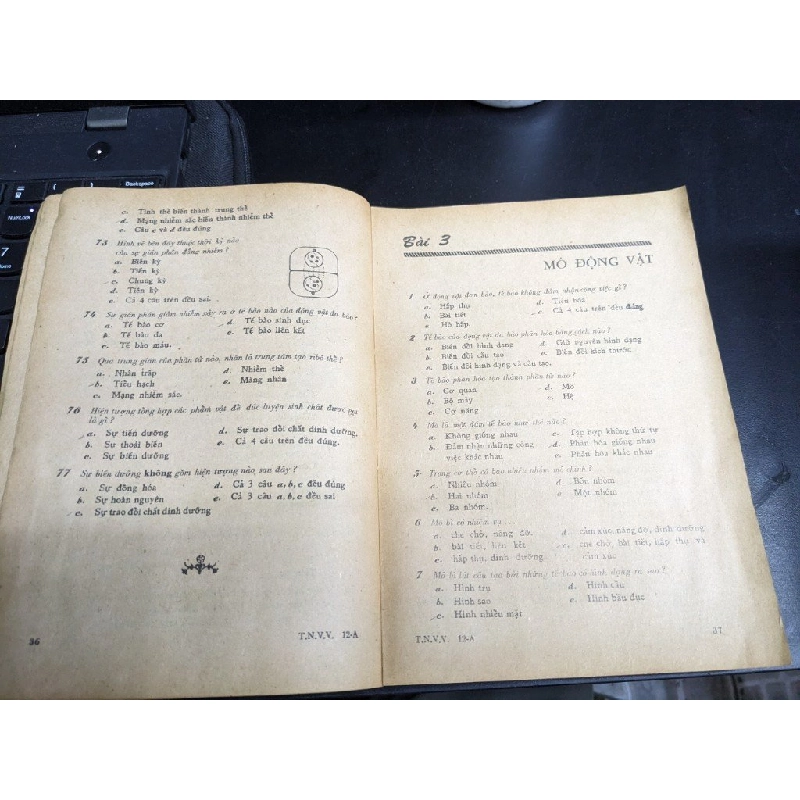 Backspace
7
c. Tinh thể biến thành trung thể
d. Mạng nhiễm sắc biến thành nhiễm thể
e. Câu c và d đều đúng
73 Hình vẽ bên đây thuộc thời kỳ nào
của sự gián phân đẳng nhiễm?
a. Biến kỳ
b. Tiến kỳ
c. Chung kỳ
d. Tiền kỳ
e. Cả 4 câu trên đều sai
74 Sự gián phân giảm nhiễm xảy ra ở tế bào nào của động vật đa bào?
a. Tế bào cơ
d. Tế bào sinh dục
b. Tế bào da
e. Tế bào liên kết
c. Tế bào máu.
75 Qua trung gian của phần tử nào, nhân là trung tâm tạo ribô thể?
a. Nhân trấp
d. Nhiễm thể
b. Tiểu hạch
e. Màng nhân
c. Mạng nhiễm sắc.
76 Hiện tượng tổng hợp các phẩm vật để đúc luyện sinh chất được gọi
là gì?
a. Sự tiến dưỡng
d. Sự trao đổi chất dinh dưỡng.
b. Sự thoái biến
e. Cả 4 câu trên đều đúng.
c. Sự biến dưỡng
77 Sự biến dưỡng không gồm hiện tượng nào sau đây?
a. Sự đồng hóa
d. Cả 3 câu a, b, c đều đúng
b. Sự hoàn nguyên
e. Cả 3 câu a, b, c đều sai
c. Sự trao đổi chất dinh dưỡng
36
T.N.V.V. 12-A
Bài 3
MÔ ĐỘNG VẬT
1 Ở động vật đơn bào, tế bào không đảm nhận công việc gì?
a. Hấp thụ
d. Tiêu hóa
b. Bài tiết
e. Cả 4 câu trên đều đúng
c. Hô hấp
2 Tế bào của động vật đa bào phân hóa bằng cách nào?
a. Biến đổi hình dạng
d. Giữ nguyên hình dạng
b. Biến đổi cấu tạo
e. Biến đổi kích thước.
c. Biến đổi hình dạng và cấu tạo.
3 Tế bào phân hóa tạo thành phần tử nào?
a. Cơ quan
d. Mô
b. Bộ máy
e. Hệ
c. Cơ năng
4 Mô là một đám tế bào như thế nào?
a. Không giống nhau
c. Tạp hợp không thứ tự
b. Đảm nhận những công
d. Phân hóa giống nhau
việc khác nhau
e. Phân hóa khác nhau
5 Trong cơ thể có bao nhiêu nhóm mô chính?
a. Nhiều nhóm
d. Bốn nhóm
b. Hai nhóm
e. Một nhóm
c. Ba nhóm.
6 Mô bì có nhiệm vụ
a. che chở, nâng đỡ.
d. cảm xúc, nâng đỡ, dinh dưỡng
b. bài tiết, liên kết
e. che chở, bài tiết, hấp thụ và
c. hấp thụ, dinh dưỡng
cảm xúc
7 Mô bì lát cấu tạo bởi những tế bào có hình dạng ra sao?
a. Hình trụ
d. Hình cầu
b. Hình sao
e. Hình bầu dục
c. Hình nhiều mặt
T.N.V.V 12-A
37